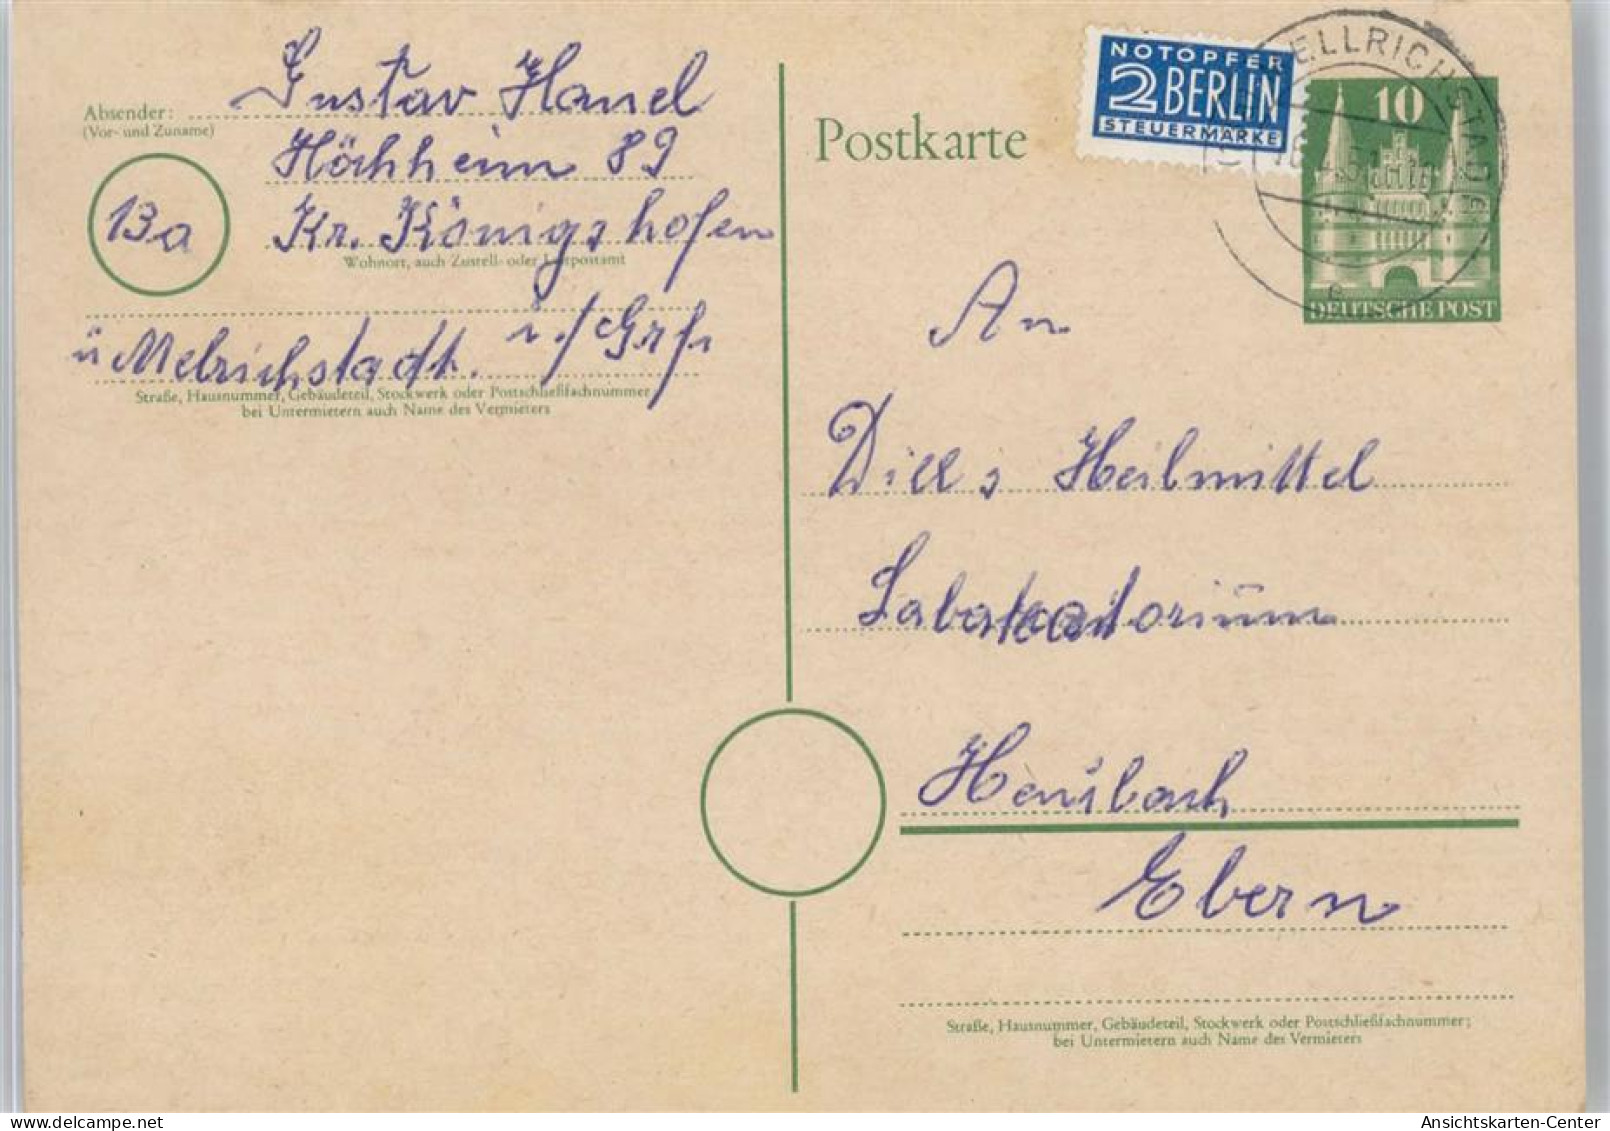 Absender:
(Vor- und Zuname)
Gustav Hanel
Höchheim 89
13a
Kr. Königshofen
Wohnort, auch Zustell- oder Leitpostamt
i./Grf.
ü Melrichstadt.
Straße, Hausnummer, Gebäudeteil, Stockwerk oder Postschließfachnummer
bei Untermietern auch Name des Vermieters
Postkarte
NOTOPFER
2 BERLIN
STEUERMARKE
ELLRICHSTADT
10
DEUTSCHE POST
An
Dill's Heilmittel
Laboratorium
Heubach
Ebern
Straße, Hausnummer, Gebäudeteil, Stockwerk oder Postschließfachnummer;
bei Untermietern auch Name des Vermieters
delcampe.net
posthalle
Ansichtskarten-Center